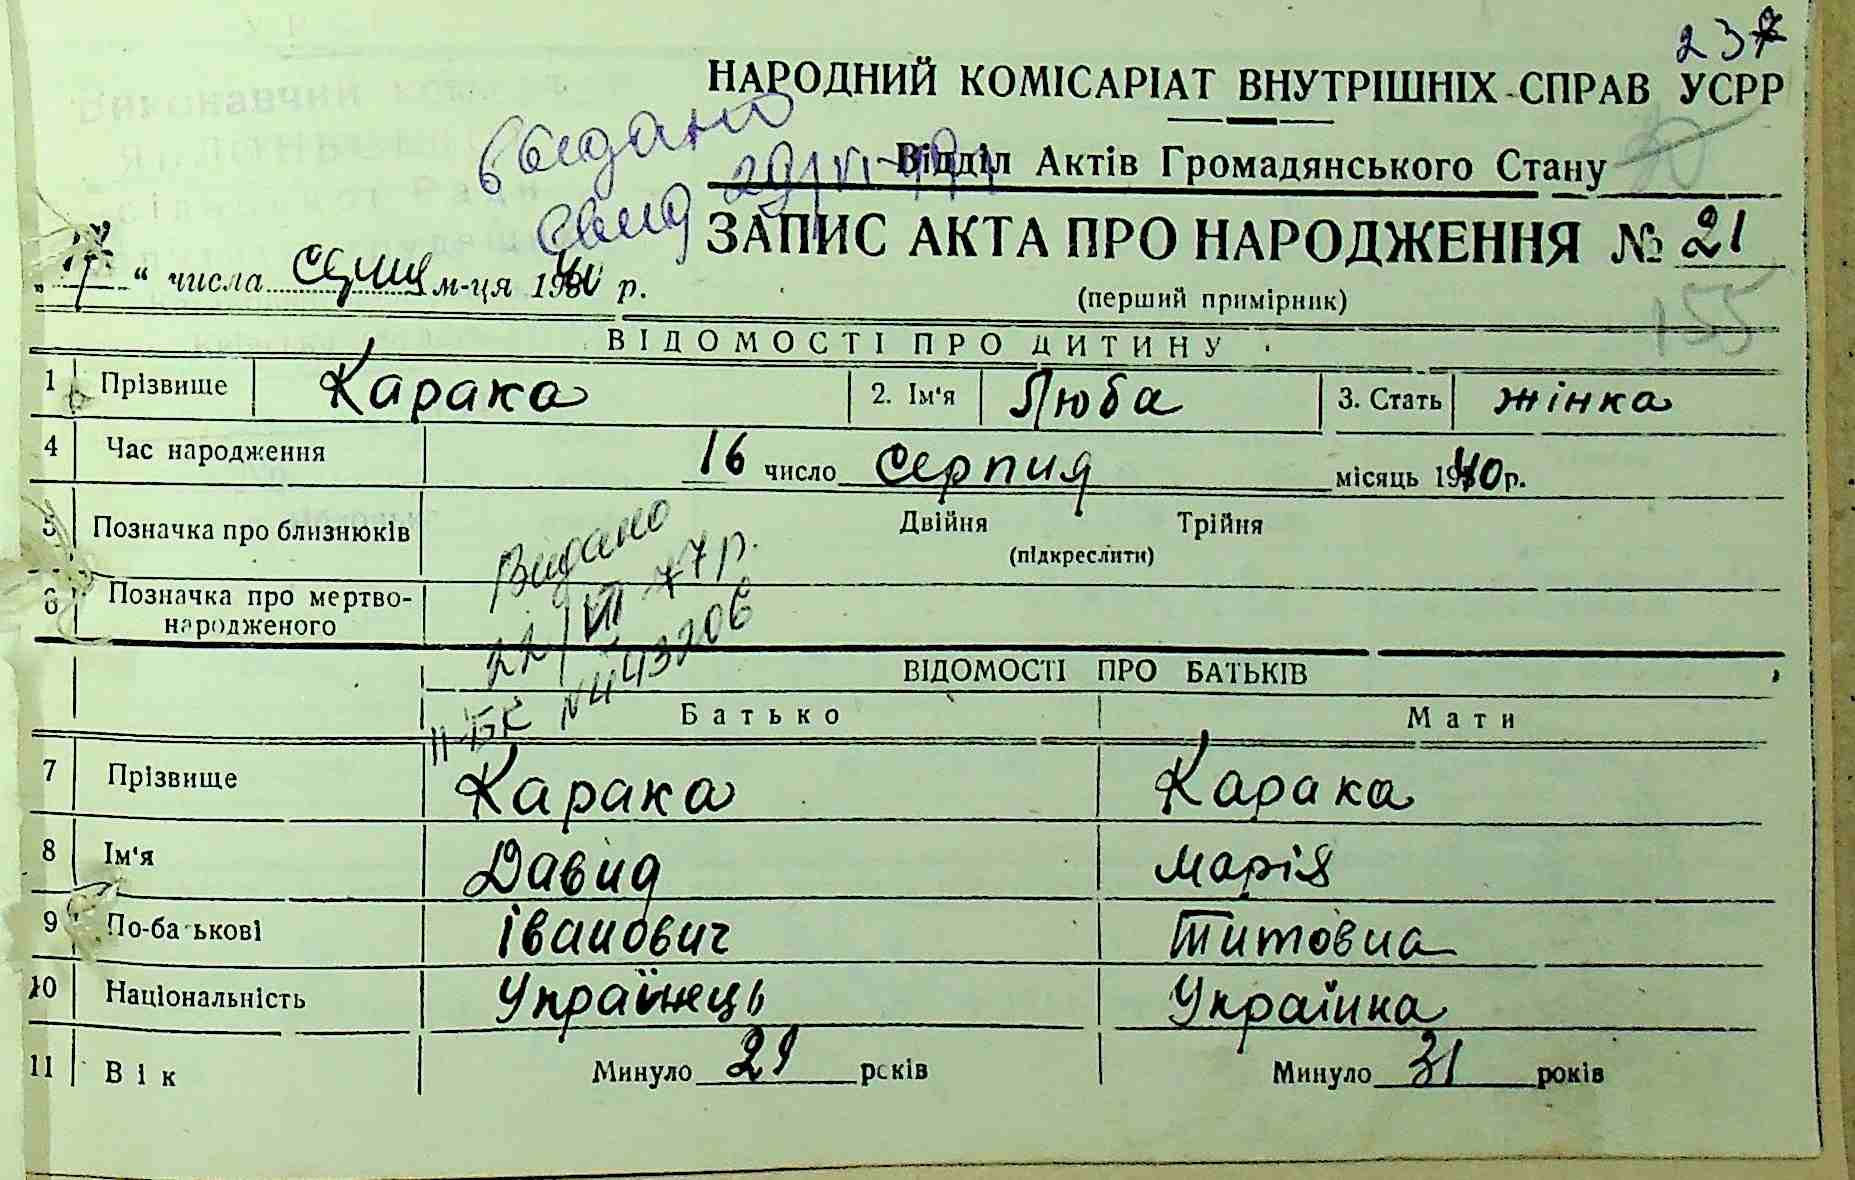 237
НАРОДНИЙ КОМІСАРІАТ ВНУТРІШНІХ СПРАВ УСРР
видано
Відділ Актів Громадянського Стану
ЗАПИС АКТА ПРО НАРОДЖЕННЯ № 21
„ “ числа м-ця 1940 р.
(перший примірник)
155
ВІДОМОСТІ ПРО ДИТИНУ
1 Прізвище Карака 2. Ім'я Люба 3. Стать жінка
4 Час народження 16 число Серпня місяць 1940 р.
5 Позначка про близнюків Двійня Трійня
(підкреслити)
Видано
22/VII 77 р.
II-БК № 443206
6 Позначка про мертво-
народженого
ВІДОМОСТІ ПРО БАТЬКІВ
Батько Мати
7 Прізвище Карака Карака
8 Ім'я Давид Марія
9 По-батькові Іванович Титовна
10 Національність Українець Українка
11 Вік Минуло 29 рсків Минуло 31 років